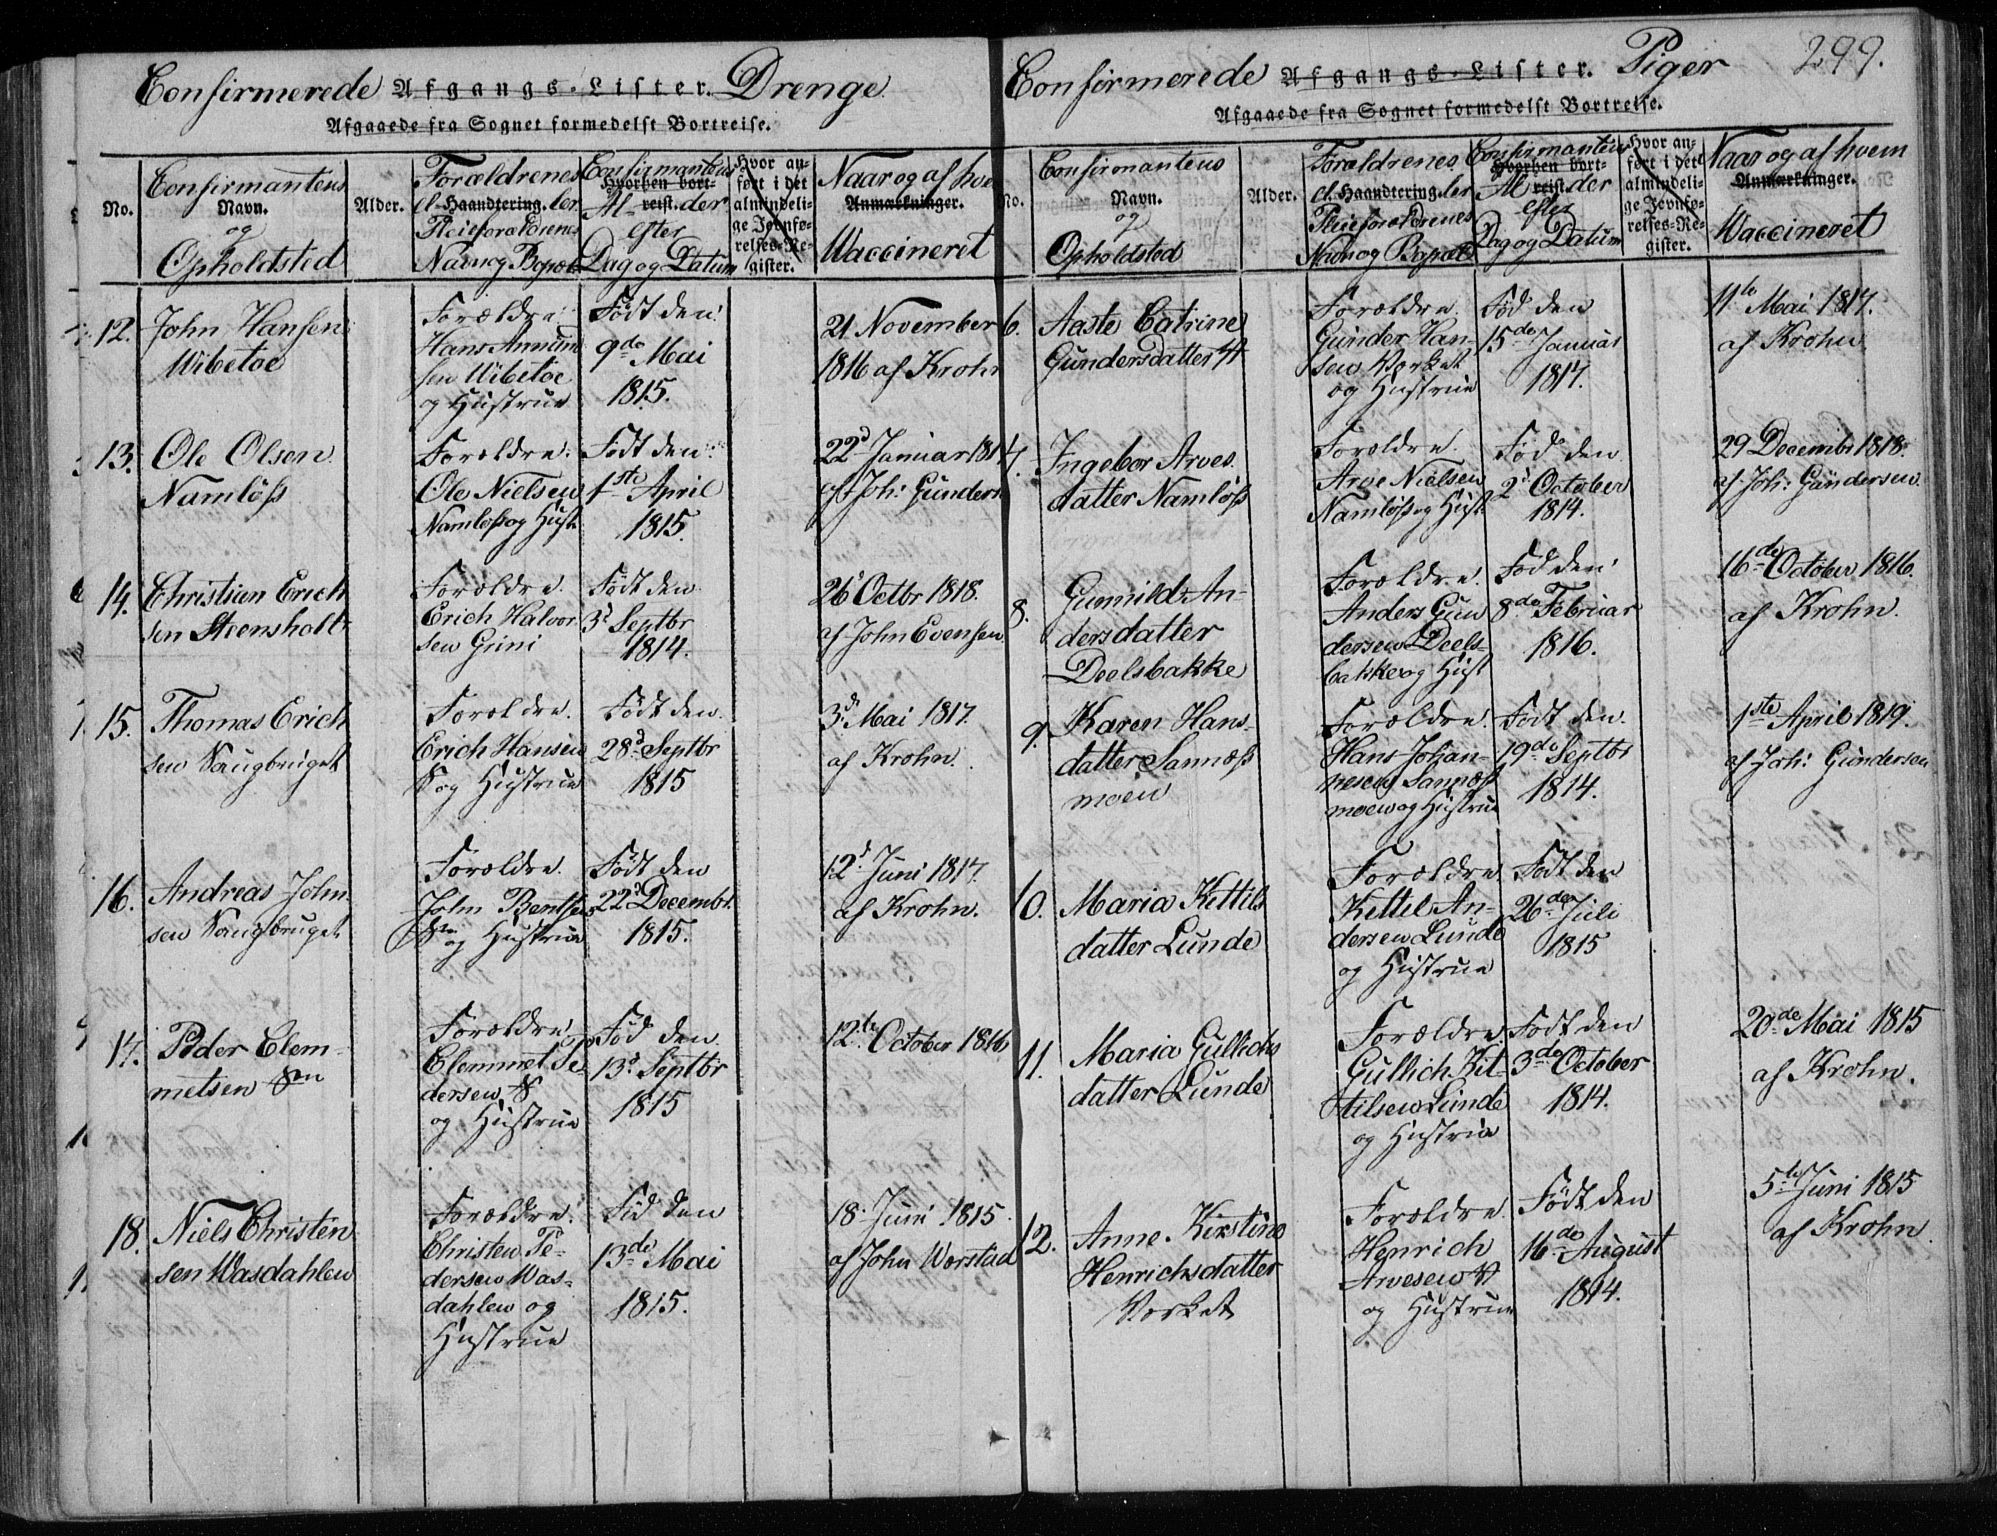 Confirmerede Afgangs-Lister. Drenge.
Afgaaede fra Sognet formedelst Bortreise.
No.
Confirmantens
Navn.
og
Opholdsted
Alder.
Forældrenes
el. Haandtering. ler
Pleieforældrenes
Navn og Bopæl
Confirmantens
Hvorhen bort-
Al- reist. der
efter
Dag og Datum
Hvor an-
ført i det
almindeli-
ge Jevnfø-
relses-Re-
gister.
Naar og af hvem
Anmærkninger.
Waccineret
12.
John Hansen
Wibetoe
Forældre:
Hans Amund
sen Wibetoe
og Hustrue
Født den:
9de Mai
1815.
21 November
1816 af Krohn
13.
Ole Olsen
Namløss
Forældre:
Ole Nielsen
Namløss og Hust
Født den:
1ste April
1815.
22d Januar 181
af Joh: Gunders
14.
Christian Erich
sen Steensholt
Forældre.
Erich Halvor
sen Grini
Født den
3d Septbr
1814.
26d Octbr 1818.
af John Evensen
15.
Thomas Erich
sen Saugbruget
Forældre.
Erich Hansen
S og Hustrue
Født den.
28d Septbr
1815
3d Mai 1817.
af Krohn.
16.
Andreas John
sen Saugbruget
Forældre.
John Bentsen
og Hustrue
Født den
22d Decembr.
1815.
12d Juni 1817.
af Krohn.
17.
Peder Clem-
metsen
Forældre
Clemmet Pe-
dersen S
og Hustrue
Fød den
13d Septbr
1815
12te October 1816
18.
Niels Christen
sen Wasdahlen
Forældre.
Christen Pe-
dersen Was-
dahlen og
Hustrue
Fød den
13de Mai
1815.
18. Juni 1815.
af John Worstad
299.
Confirmerede Afgangs-Lister. Piger
Afgaaede fra Sognet formedelst Bortreise.
No.
Confirmantens
Navn.
og
Opholdsted
Alder.
Forældrenes
el. Haandtering. ler
Pleieforældrenes
Navn og Bopæl
Confirmantens
Hvorhen bort-
Al- reist. der
efter
Dag og Datum
Hvor an-
ført i det
almindeli-
ge Jevnfø-
relses-Re-
gister.
Naar og af hvem
Anmærkninger.
Waccineret
6.
Aaste Catrine
Gundersdatter
Forældre.
Gunder Han-
sen Værket
og Hustrue
Fød den
15de Januar
1817.
11te Mai 1817.
af Krohn
7.
Ingebor Arves
datter Namløss
Forældre
Arve Nielsen
Namløss og Hust
Fød den
2d October
1814.
29 Decembr 1818.
af Joh: Gundersen
8.
Gunnild An-
dersdatter
Deelsbakke
Forældre.
Anders Gun
dersen Deels-
bakke og Hust
Fød den:
8de Februar
1816.
16de October 1816.
af Krohn.
9.
Karen Hans-
datter Sannæss
moen
Forældre.
Hans Johan-
nesen Sannæss
moen og Hustrue
Født den.
19de Septbr
1814.
1ste April 1819.
af Joh: Gundersen
10.
Maria Kettils
datter Lunde
Forældre.
Kettel An-
dersen Lunde
og Hustrue
Født den
26de Juli
1815
11.
Maria Gullichs
datter Lunde
Forældre.
Gullich Kit-
tilsen Lunde
og Hustrue
Født den
3de October
1814.
20de Mai 1815
af Krohn.
12.
Anne Kirstine
Henrichsdatter
Værket
Forældre.
Henrich
Arvesen
og Hustrue
Født den
16de August
1814.
5te Juni 1815
af Krohn.